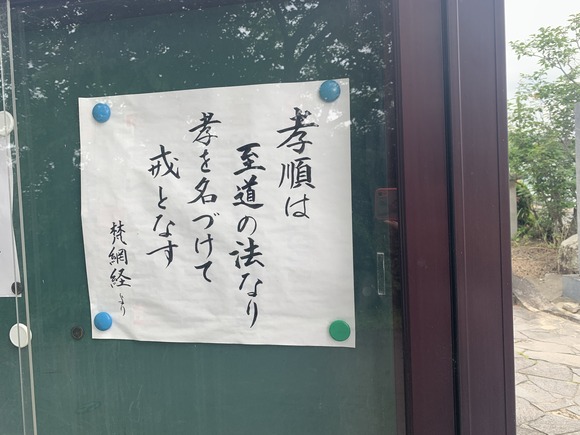 孝順は
至道の法なり
孝を名づけて
戒となす
梵網経より